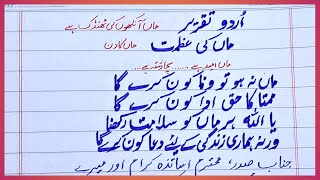 اُردو تقریر
ماں آنکھوں کی ٹھنڈک ہے
ماں کی عظمت
ماں کا دن
ماں نہ ہو تو وفا کون کرے گا
ممتا کا حق ادا کون کرے گا
یا اللہ ہر ماں کو سلامت رکھنا
ورنہ ہماری زندگی کے لئے دعا کون کرے گا
جناب صدر، محترم اساتذہ کرام اور میرے